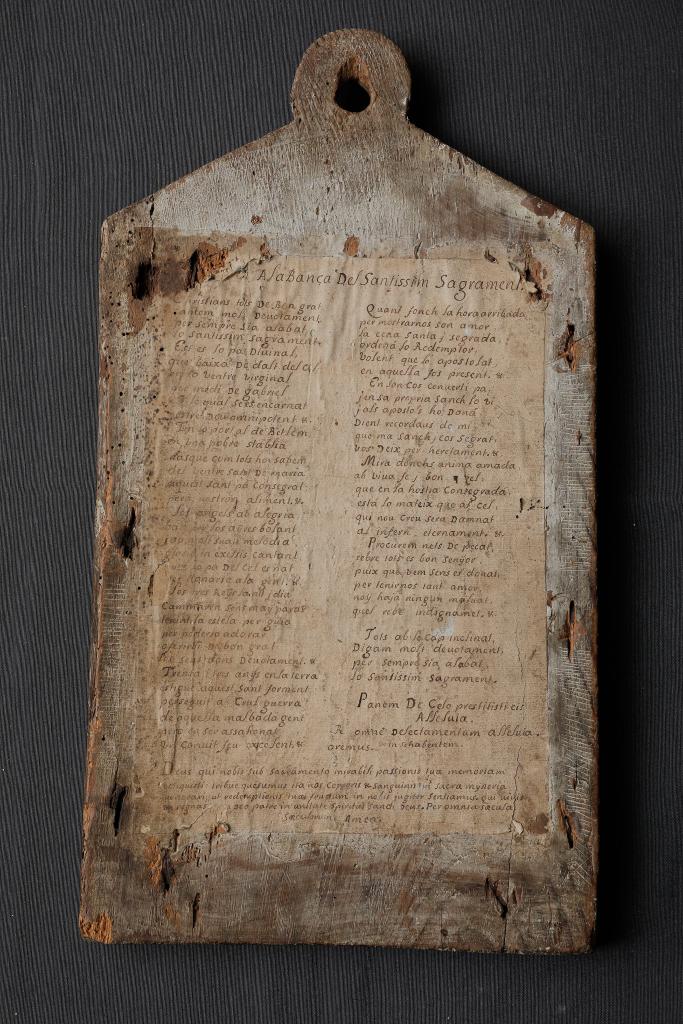 AlaBança Del Santissim Sagrament.
christians tots De Bon grat
cantem molt Devotament,
per sempre sia alabat
lo santissim sagrament.
Est es lo pa Divinal,
que baixà De dalt del Cel
en lo ventre virginal
per medi de gabriel
lo qual se es encarnat
omnipotent. &
En lo portal de Betlem
en una pobre stablia
dasque com tots ho sabem
del ventre sant De maria
aquest sant pà Consegrat
perà nostron aliment. &
Los angels ab alegria
per los ayres bolant
ab molt suave melodia
gloria in excelsis cantant
lo pa Del Cel es nat
ignoria ala gent. &
Los tres Reys lant dia
Caminaren sens may parar
tenint la estela per guia
per poderlo adorar
oferiren De bon grat
los seus dons Devotament. &
Trenta i tres anys en la terra
estigue aquest sant forment
perseguit a Crus guerra
de aquella malvada gent
assahonat
excelent. &
Quant fonch la hora arribada
per mostrarnos son amor
la cena santa j segrada
ordenà lo Redemptor,
volent que lo apostolat
en aquella fos present. &
En son Cos converti pa,
jen sa propria sanch lo vi
jals apostols ho Donà
Dient recordaus de mi
que ma sanch, j cos segrat
vos Deix per heretament. &
Mira donchs anima amada
ab viva fe, j bon zel
que en la hostia Consegrada
està lo mateix que al Cel
qui nou Creu sera Damnat
al infern, eternament. &
Procurem nets De pecat
rebre tots es bon senyor
puix que bem sens es donat
per tenirnos tant amor
noy haja ningun malvat
quel rebe indignament. &
Tots ab lo Cap inclinat,
Digam molt devotament,
per sempre sia alabat
lo santissim sagrament.
Panem De Celo prestitisti eis
Alleluia.
R omne Delectamentum alleluia.
oremus. in se habentem.
Deus qui nobis sub sacramento mirabili passionis tuæ memoriam
reliquisti: tribue quesumus ita nos Corporis & sanguinis tui sacra mysteria
venerari, ut redemptionis tuæ fructum in nobis jugiter sentiamus. qui vivis
et regnas Deo patre in unitate Spiritus Sancti Deus. Per omnia sæcula
sæculorum. Amen.